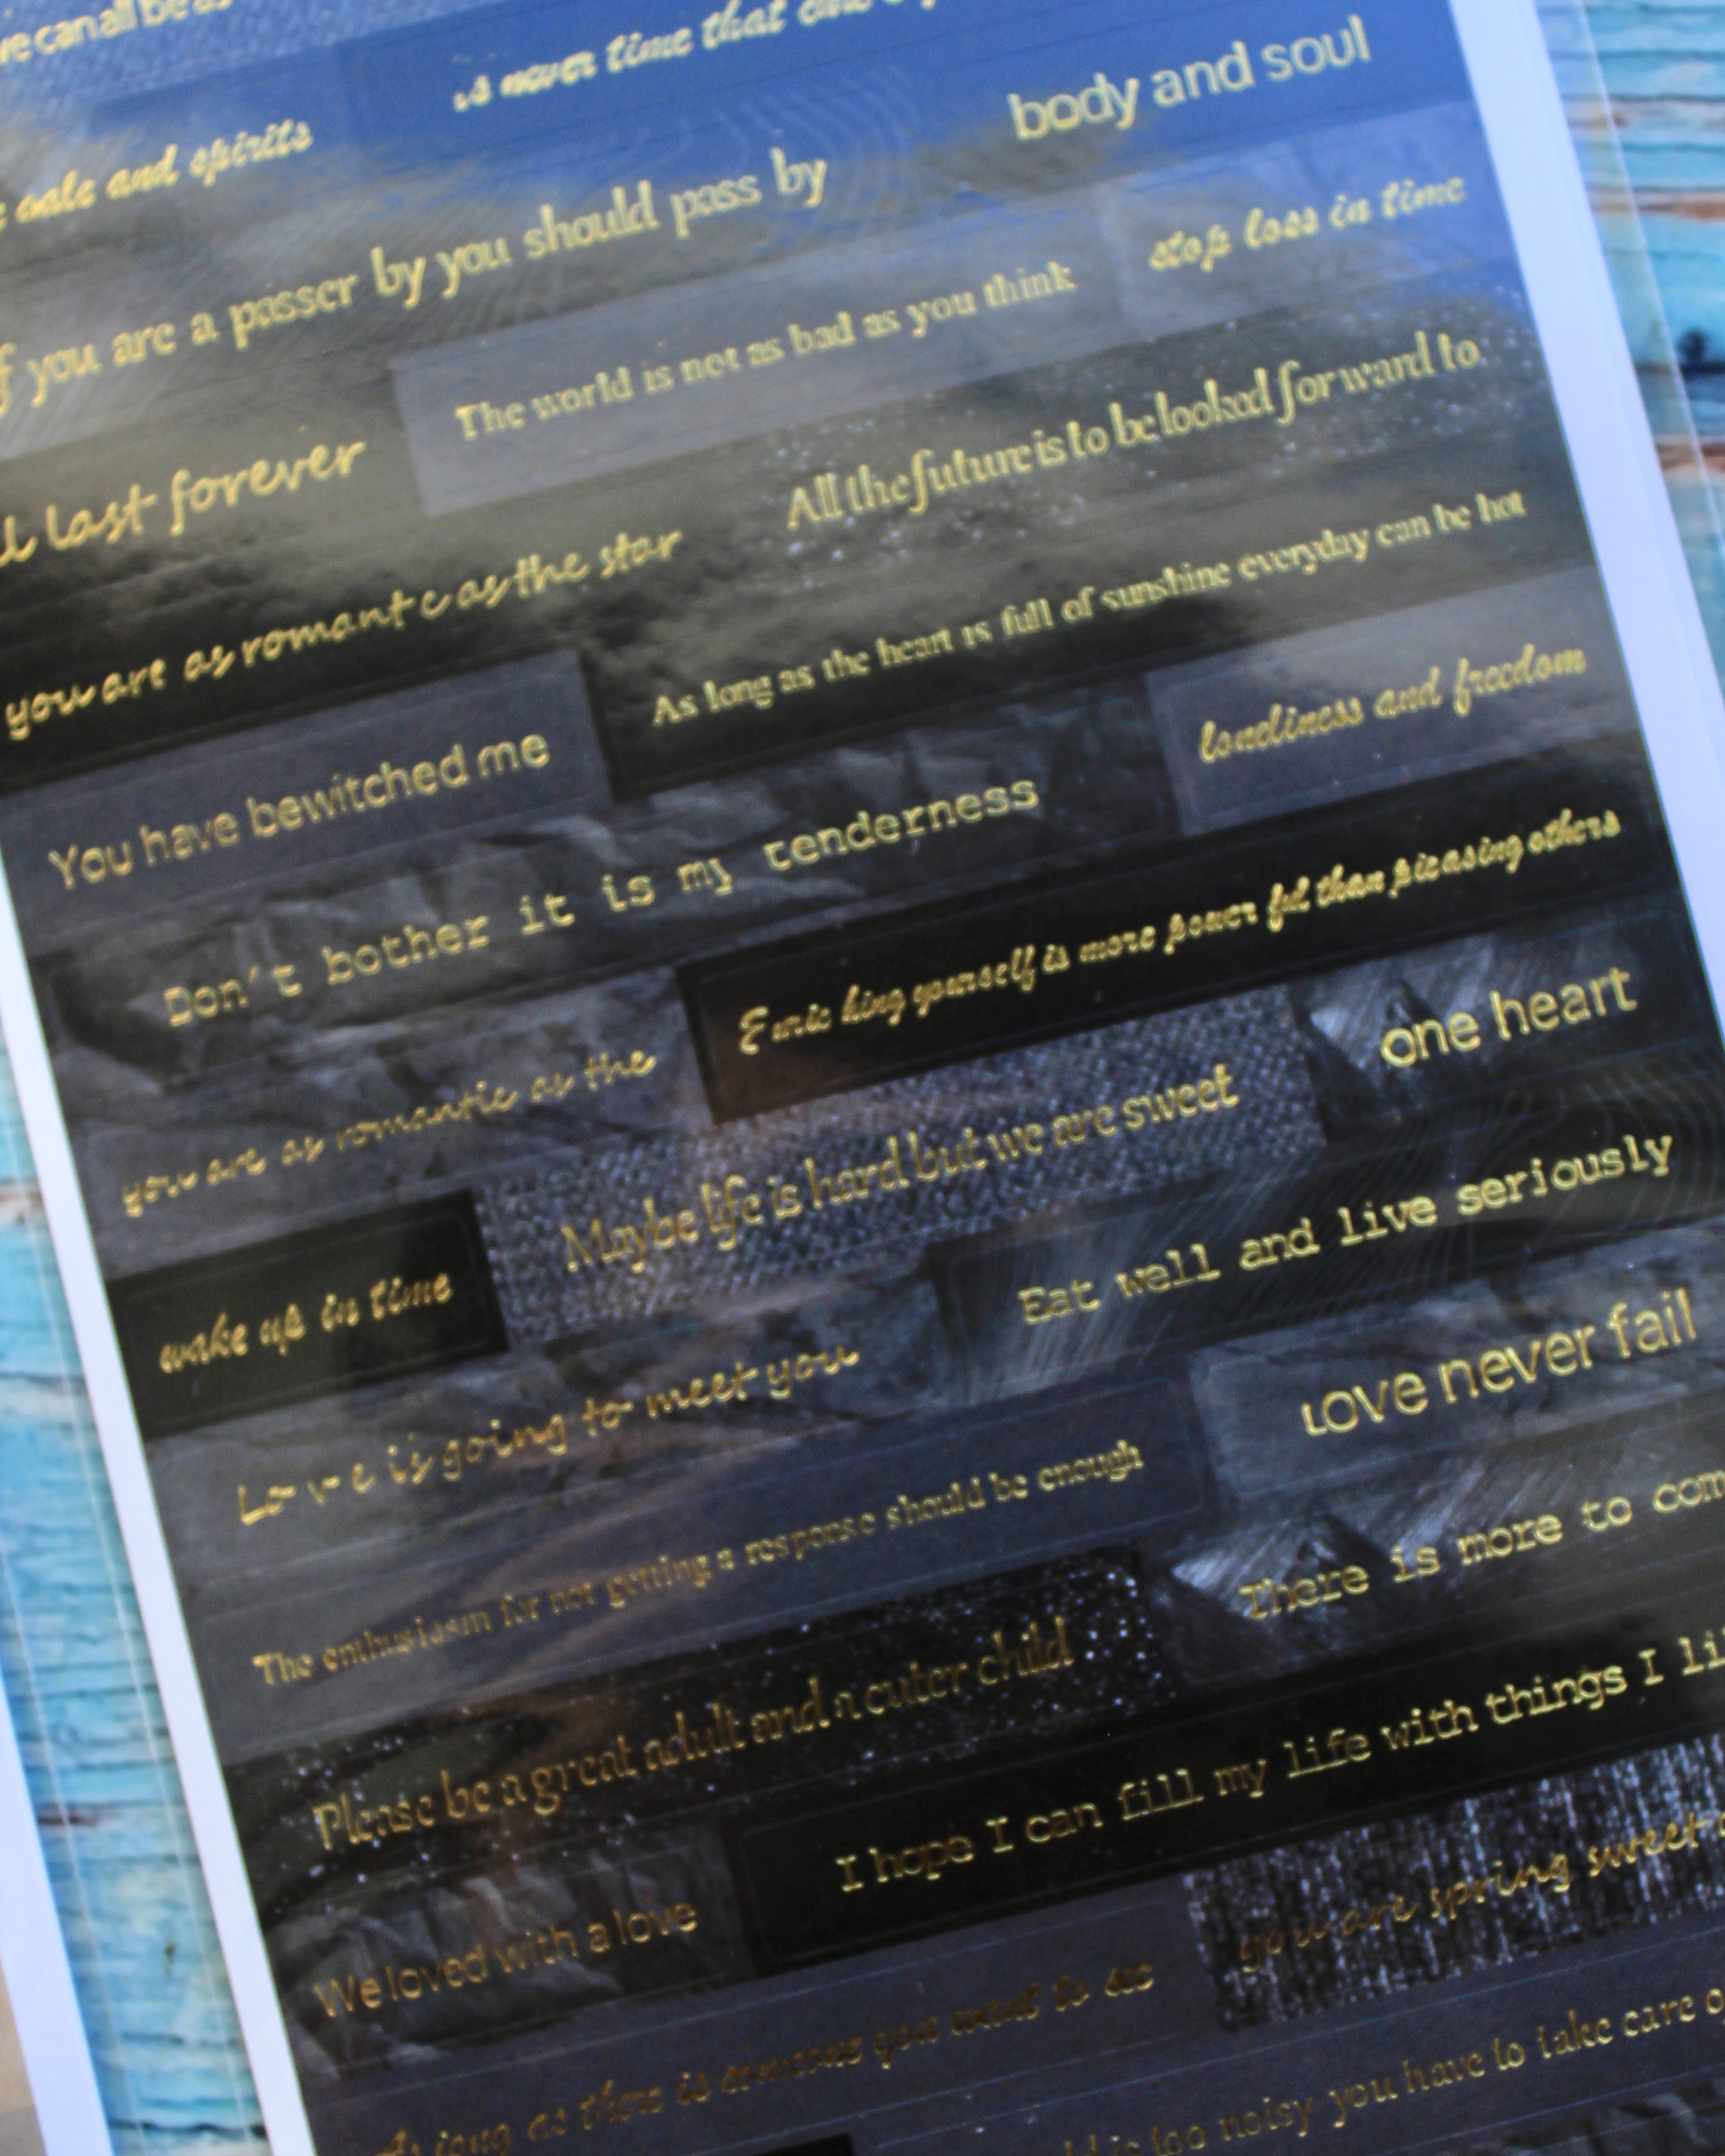 we can all be as
ale and spirits
is never time that
If you are a passer by you should pass by
body and soul
last forever
The world is not as bad as you think
stop loss in time
you are as romantic as the star
All the future is to be looked forward to
You have bewitched me
As long as the heart is full of sunshine everyday can be hot
Don't bother it is my tenderness
loneliness and freedom
you are as romantic as the
Enric hing yourself is more power ful than pleasing others
wake up in time
Maybe life is hard but we are sweet
one heart
Love is going to meet you
Eat well and live seriously
The enthusiasm for not getting a response should be enough
Love never fail
Please be a great adult and a cuter child
There is more to com
We loved with a love
I hope I can fill my life with things I li
As long as there is someone you want to see
you are spring sweet
is too noisy you have to take care o